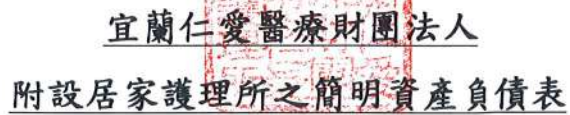 宜蘭仁愛醫療財團法人
附設居家護理所之簡明資產負債表